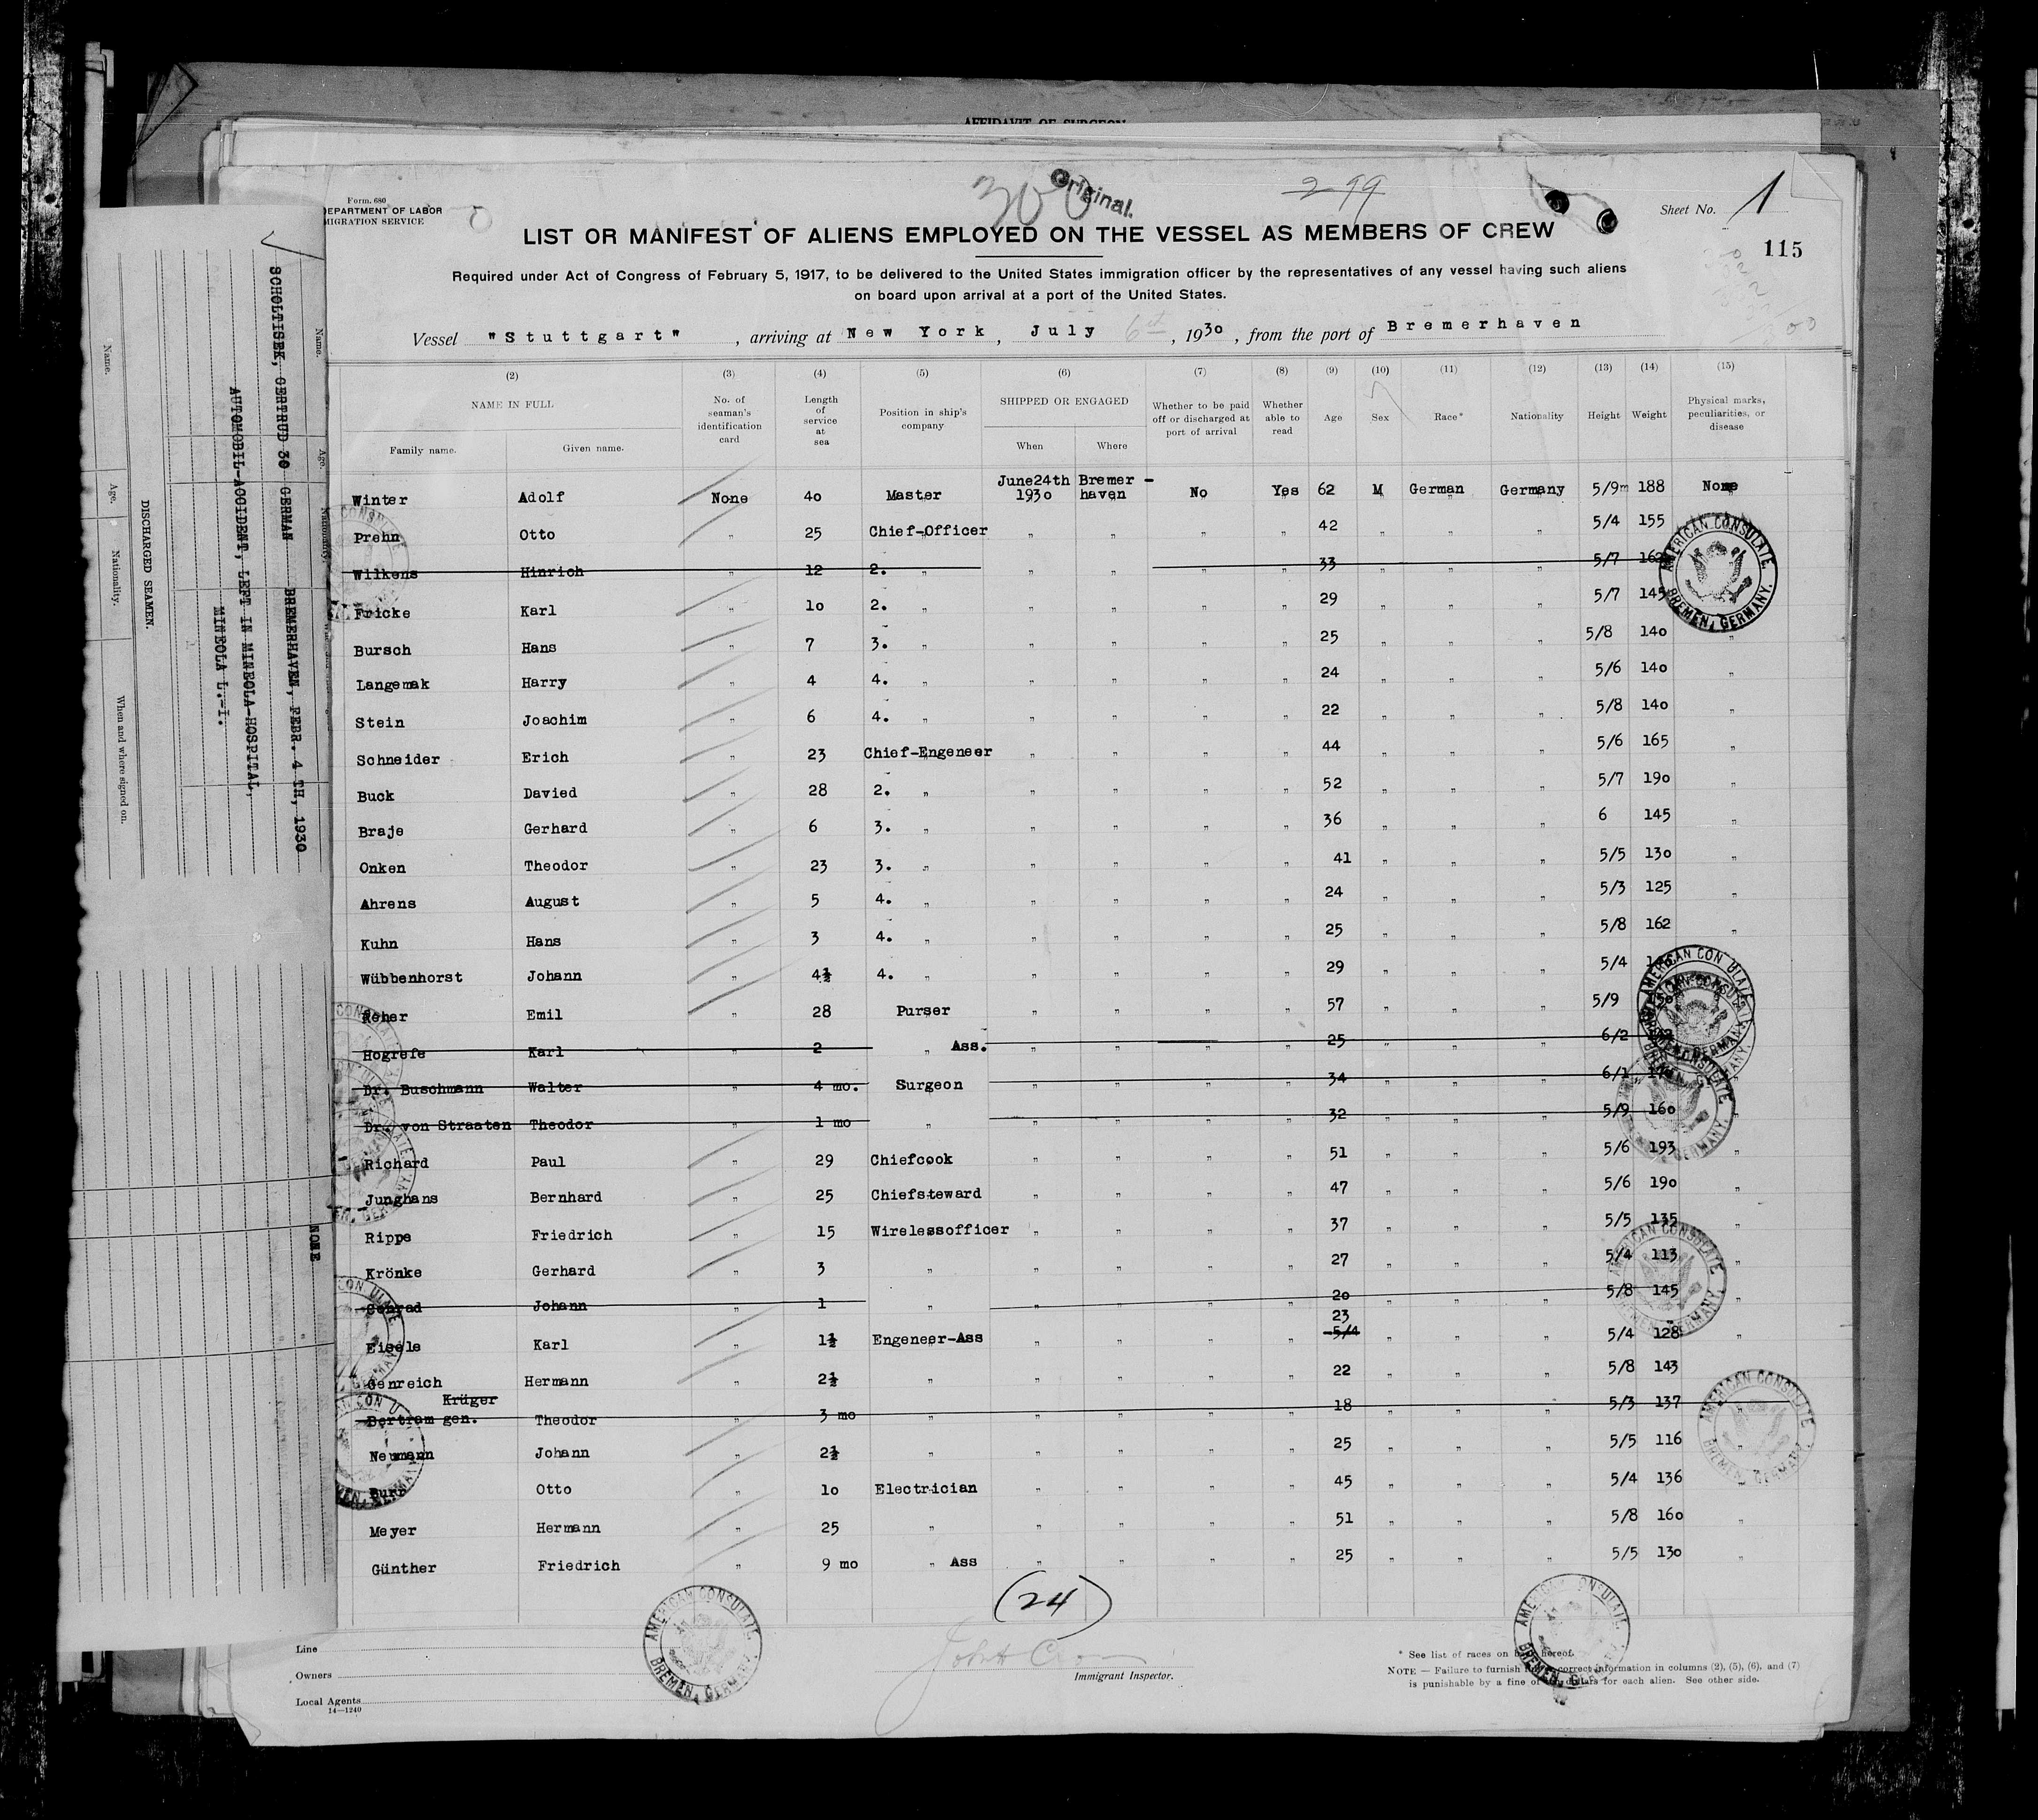 AFFIDAVIT OF SURGEON
Form. 680
DEPARTMENT OF LABOR
MIGRATION SERVICE
300
Original.
299
Sheet No. 1
115
LIST OR MANIFEST OF ALIENS EMPLOYED ON THE VESSEL AS MEMBERS OF CREW
Required under Act of Congress of February 5, 1917, to be delivered to the United States immigration officer by the representatives of any vessel having such aliens
on board upon arrival at a port of the United States.
Vessel "Stuttgart" , arriving at New York , July 6 , 1930 , from the port of Bremerhaven
(2) (3) (4) (5) (6) (7) (8) (9) (10) (11) (12) (13) (14) (15)
NAME IN FULL No. of seaman's identification card Length of service at sea Position in ship's company SHIPPED OR ENGAGED Whether to be paid off or discharged at port of arrival Whether able to read Age Sex Race* Nationality Height Weight Physical marks, peculiarities, or disease
Family name. Given name. When Where
Winter Adolf None 40 Master June24th 1930 Bremer-haven No Yes 62 M German Germany 5/9 188 None
Prehn Otto " 25 Chief-Officer " " " " 42 " " " 5/4 155
Wilkens Hinrich " 12 2. " " " " " 33 " " " 5/7
Fricke Karl " 10 2. " " " " " 29 " " " 5/7 145
Bursch Hans " 7 3. " " " " " 25 " " " 5/8 140 "
Langemak Harry " 4 4. " " " " " 24 " " " 5/6 140 "
Stein Joachim " 6 4. " " " " " 22 " " " 5/8 140 "
Schneider Erich " 23 Chief-Engeneer " " " " 44 " " " 5/6 165 "
Buck Davied " 28 2. " " " " " 52 " " " 5/7 190 "
Braje Gerhard " 6 3. " " " " " 36 " " " 6 145 "
Onken Theodor " 23 3. " " " " " 41 " " " 5/5 130 "
Ahrens August " 5 4. " " " " " 24 " " " 5/3 125 "
Kuhn Hans " 3 4. " " " " " 25 " " " 5/8 162 "
Wübbenhorst Johann " 4½ 4. " " " " " 29 " " " 5/4
Reher Emil " 28 Purser " " " " 57 " " " 5/9
Hogrefe Karl " 2 " Ass. " " " " 25 " " " 6/2
Dr. Buschmann Walter " 4 mo. Surgeon " " " " 34 " " " 6/1
Dr. von Straaten Theodor " 1 mo " " " " " 32 " " " 5/9 160 "
Richard Paul " 29 Chiefcook " " " " 51 " " " 5/6 193 "
Junghans Bernhard " 25 Chiefsteward " " " " 47 " " " 5/6 190 "
Rippe Friedrich " 15 Wirelessofficer " " " " 37 " " " 5/5 135 "
Krönke Gerhard " 3 " " " " " 27 " " " 5/4 113 "
Conrad Johann " 1 " " " " " 20 " " " 5/8 145 "
Eisele Karl " 1½ Engeneer-Ass " " " " 23 5/4 " " " 5/4 128 "
Genreich Hermann " 2½ " " " " " 22 " " " 5/8 143 "
Krüger
Bertram gen. Theodor " 3 mo " " " " " 18 " " " 5/3 137 "
Neumann Johann " 2½ " " " " " 25 " " " 5/5 116 "
Otto " 10 Electrician " " " " 45 " " " 5/4 136 "
Meyer Hermann " 25 " " " " " 51 " " " 5/8 160 "
Günther Friedrich " 9 mo " Ass " " " " 25 " " " 5/5 130 "
(24)
Line
Owners
Local Agents
14—1240
Immigrant Inspector.
* See list of races on hereof.
NOTE — Failure to furnish correct information in columns (2), (5), (6), and (7)
is punishable by a fine of dollars for each alien. See other side.
AMERICAN CONSULATE
BREMEN, GERMANY.
AMERICAN CONSULATE
BREMEN, GERMANY.
AMERICAN CONSULATE
BREMEN, GERMANY.
AMERICAN CONSULATE
BREMEN, GERMANY.
DISCHARGED SEAMEN.
Name. Age. Nationality. When and where signed on.
Name. Age. Nationality.
SCHOLTISEK, GERTRUD 30 GERMAN BREMERHAVEN, FEBR. 4 TH, 1930
AUTOMOBIL-ACCIDENT, LEFT IN MINEOLA-HOSPITAL,
MINEOLA L.-I.
NONE